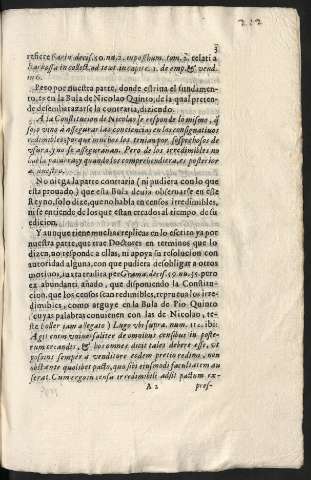 212
3
refiere Farin. decis. 80. nu. 2. in posthum. tom. 3. relati à
Barbossa in collect. ad text. in cap. in. 1. de emp. & vend.
in 6.
Pero por nuestra parte, donde estriua el fundamen-
to, es en la Bula de Nicolao Quinto, de la qual preten-
de desembarazarse la contraria, diziendo.
A la Constitucion de Nicolas se responde lo mismo, q̃
solo vino a assegurar las conciencias en los consignatiuos
redimibles, porque muchos los tenian por sospechosos de
vsura, y no se asseguranan. Pero de los irredimibles no
habla palabra, y quando los comprehendiera, es posterior
a nuestro
No niega la parte contraria (ni pudiera con lo que
esta prouado) que esta Bula deuia obseruarse en este
Reyno, solo dize, que no habla en censos irredimibles,
ni se entiende de los que estan creados al tiempo de su
edicion.
Y aunque tiene muchas replicas en lo escrito ya por
nuestra parte, que trae Doctores en terminos que lo
dizen, no responde a ellas, ni apoya su resolucion con
autoridad alguna, con que pudiera desobligar a otros
motiuos, iuxta tradita per Gram. decis. 59. nu. 35. pero
ex abundanti añado, que disponiendo la Constitu-
cion, que los censos sean redimibles, reprueua los irre-
dimibles, como arguye en la Bula de Pio Quinto
(cuyas palabras conuienen con las de Nicolao, te-
ste boller iam allegato) Lugo vbi supra. num. 11. ibi:
Agit enim vniuersaliter de omnibus censibus in poste-
rum creandis, & hos omnes dicit tales debere esse, vt
possint semper a venditore eodem pretio redimi, non
obstante quolibet pacto, quo sibi eiusmodi facultatem au
ferat. Cum ergo in censu irredimibili adsit pactum ex-
A 2
pres-